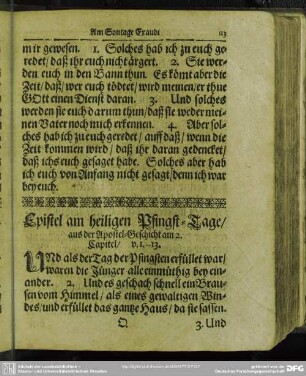 Am Sontage Exaudi 113
mir gewesen. 1. Solches hab ich zu euch ge-
redet/ daß ihr euch nicht årgert. 2. Sie wer-
den euch in den Bann thun. Es kömt aber die
Zeit/ daß/ wer euch tödtet/ wird meinen/ er thue
GOtt einen Dienst daran. 3. Und solches
werden sie euch darum thun/ daß sie weder mei-
nen Vater noch mich erkennen. 4. Aber sol-
ches hab ich zu euch geredet/ auff daß/ wenn die
Zeit kommen wird/ daß ihr daran gedencket/
daß ichs euch gesaget habe. Solches aber hab
ich euch von Anfang nicht gesagt/ denn ich war
bey euch.
Epistel am heiligen Pfingst-Tage/
aus der Apostel-Geschicht am 2.
Capitel/ v. 1.-13.
UNd als der Tag der Pfingsten erfüllet war/
waren die Jünger alle einmüthig bey ein-
ander. 2. Und es geschach schnell ein Brau-
sen vom Himmel/ als eines gewaltigen Win-
des/ und erfüllet das gantze Haus/ da sie sassen.
Q 3. Und